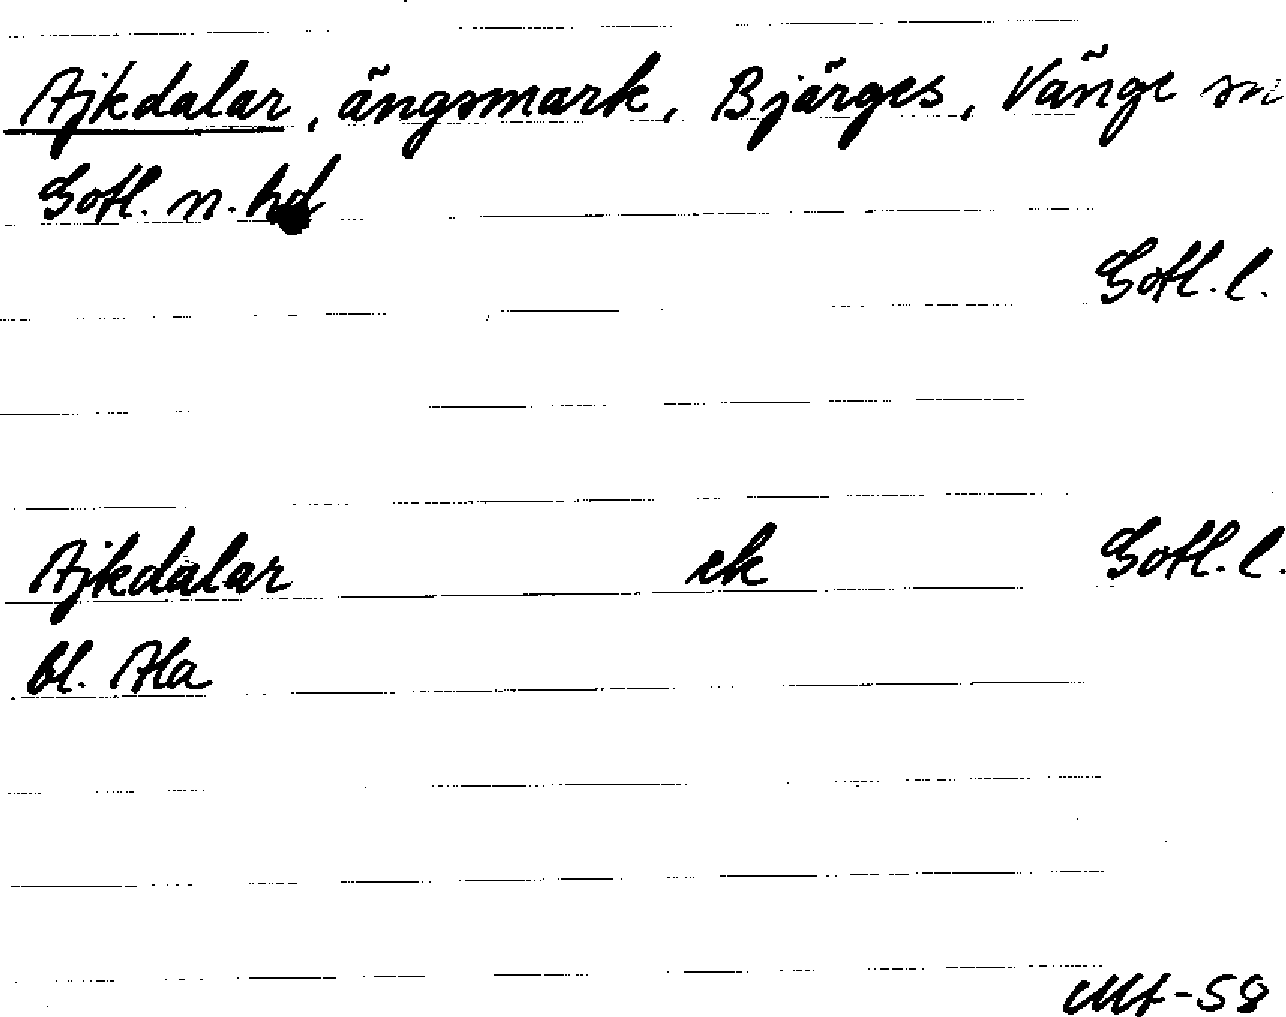 Ajkdalar, ängsmark, Bjärges, Vänge sn
Gotl. n. hd
Gotl. l.
Ajkdalar ek Gotl. l.
bl. Ala